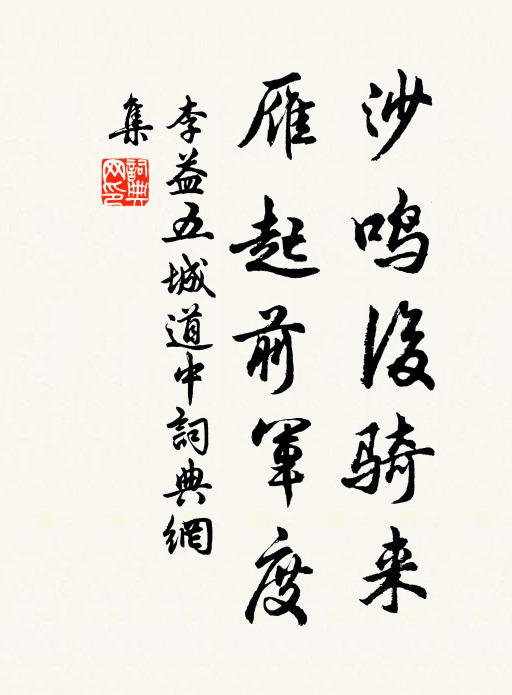 沙鸣后骑来
雁起前军度
李益五城道中詞典網
集
詞典网印